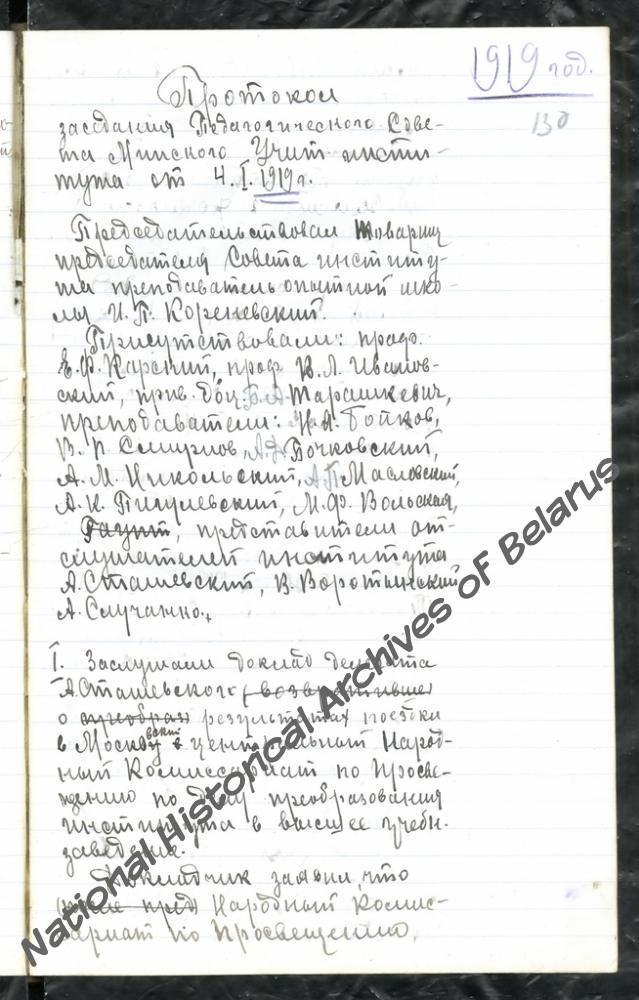 1919 год.
130
Протокол
заседания Педагогического Сове-
та Минского Учит инсти-
тута от 4.I.1919 г.
Председательствовал товарищ
председателя Совета институ-
та преподаватель опытной шко-
лы И. П. Кореневский.
Присутствовали: проф.
Е. Ф. Карский, проф В. Л. Иванов-
ский, прив. доц. Б. А. Тарашкевич,
преподаватели: Н. А. Бойков,
В. Р. Смирнов, А. Д. Бочковский,
А. М. Никольский, А. П. Масловский,
А. К. Пигулевский, М. Ф. Вольская,
представители от
слушателей института
А. Сташевский, В. Воротынский
А. Случанко.
I. Заслушали доклад делегата
А. Сташевского (возвратившег
о преобраз результатах поездки
в Москву в центральный Народ-
ный Комиссариат по Просве-
щению по делу преобразования
института в высшее учебн.
заведение.
Докладчик заявил, что
Народный Комис-
сариат по Просвещению,
National Historical Archives of Belarus